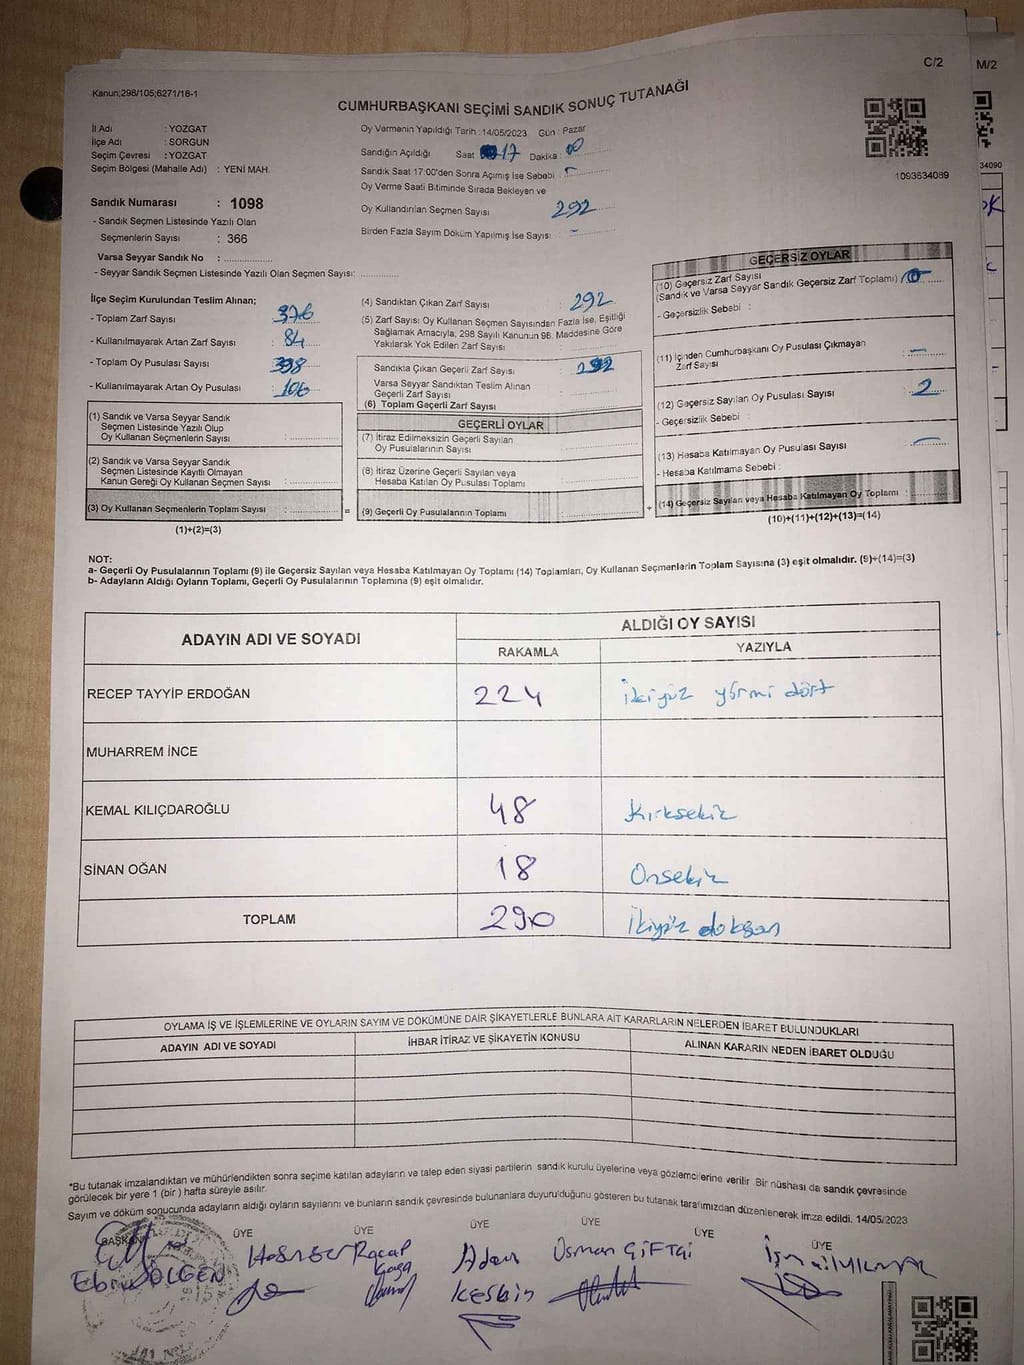 C/2
M/2
Kanun;298/105;6271/18-1
CUMHURBAŞKANI SEÇİMİ SANDIK SONUÇ TUTANAĞI
İl Adı : YOZGAT
İlçe Adı : SORGUN
Seçim Çevresi : YOZGAT
Seçim Bölgesi (Mahalle Adı) : YENİ MAH.
Sandık Numarası : 1098
- Sandık Seçmen Listesinde Yazılı Olan
Seçmenlerin Sayısı : 366
Varsa Seyyar Sandık No :
- Seyyar Sandık Seçmen Listesinde Yazılı Olan Seçmen Sayısı:
Oy Vermenin Yapıldığı Tarih :14/05/2023 Gün : Pazar
Sandığın Açıldığı Saat 17 Dakika : 00
Sandık Saat 17:00'den Sonra Açımış İse Sebebi : -
Oy Verme Saati Bitiminde Sırada Bekleyen ve
Oy Kullandırılan Seçmen Sayısı 292
Birden Fazla Sayım Döküm Yapılmış İse Sayısı : -
1093634089
34090
İlçe Seçim Kurulundan Teslim Alınan;
- Toplam Zarf Sayısı : 376
- Kullanılmayarak Artan Zarf Sayısı : 84
- Toplam Oy Pusulası Sayısı : 398
- Kullanılmayarak Artan Oy Pusulası : 106
(1) Sandık ve Varsa Seyyar Sandık
Seçmen Listesinde Yazılı Olup
Oy Kullanan Seçmenlerin Sayısı :
(2) Sandık ve Varsa Seyyar Sandık
Seçmen Listesinde Kayıtlı Olmayan
Kanun Gereği Oy Kullanan Seçmen Sayısı :
(3) Oy Kullanan Seçmenlerin Toplam Sayısı :
(1)+(2)=(3)
(4) Sandıktan Çıkan Zarf Sayısı : 292
(5) Zarf Sayısı Oy Kullanan Seçmen Sayısından Fazla İse, Eşitliği
Sağlamak Amacıyla, 298 Sayılı Kanunun 98. Maddesine Göre
Yakılarak Yok Edilen Zarf Sayısı :
Sandıkta Çıkan Geçerli Zarf Sayısı : 292
Varsa Seyyar Sandıktan Teslim Alınan
Geçerli Zarf Sayısı :
(6) Toplam Geçerli Zarf Sayısı
GEÇERLİ OYLAR
(7) İtiraz Edilmeksizin Geçerli Sayılan
Oy Pusulalarının Sayısı :
(8) İtiraz Üzerine Geçerli Sayılan veya
Hesaba Katılan Oy Pusulası Toplamı :
= (9) Geçerli Oy Pusulalarının Toplamı :
GEÇERSİZ OYLAR
(10) Geçersiz Zarf Sayısı
(Sandık ve Varsa Seyyar Sandık Geçersiz Zarf Toplamı) : 0
- Geçersizlik Sebebi :
(11) İçinden Cumhurbaşkanı Oy Pusulası Çıkmayan
Zarf Sayısı : -
(12) Geçersiz Sayılan Oy Pusulası Sayısı : 2
- Geçersizlik Sebebi :
(13) Hesaba Katılmayan Oy Pusulası Sayısı : -
- Hesaba Katılmama Sebebi :
+ (14) Geçersiz Sayılan veya Hesaba Katılmayan Oy Toplamı :
(10)+(11)+(12)+(13)=(14)
NOT:
a- Geçerli Oy Pusulalarının Toplamı (9) ile Geçersiz Sayılan veya Hesaba Katılmayan Oy Toplamı (14) Toplamları, Oy Kullanan Seçmenlerin Toplam Sayısına (3) eşit olmalıdır. (9)+(14)=(3)
b- Adayların Aldığı Oyların Toplamı, Geçerli Oy Pusulalarının Toplamına (9) eşit olmalıdır.
ADAYIN ADI VE SOYADI
ALDIĞI OY SAYISI
RAKAMLA YAZIYLA
RECEP TAYYİP ERDOĞAN 224 İkiyüz yirmi dört
MUHARREM İNCE
KEMAL KILIÇDAROĞLU 48 Kırksekiz
SİNAN OĞAN 18 Onsekiz
TOPLAM 290 İkiyüz doksan
OYLAMA İŞ VE İŞLEMLERİNE VE OYLARIN SAYIM VE DÖKÜMÜNE DAİR ŞİKAYETLERLE BUNLARA AİT KARARLARIN NELERDEN İBARET BULUNDUKLARI
ADAYIN ADI VE SOYADI İHBAR İTİRAZ VE ŞİKAYETİN KONUSU ALINAN KARARIN NEDEN İBARET OLDUĞU
*Bu tutanak imzalandıktan ve mühürlendikten sonra seçime katılan adayların ve talep eden siyasi partilerin sandık kurulu üyelerine veya gözlemcilerine verilir. Bir nüshası da sandık çevresinde
görülecek bir yere 1 (bir) hafta süreyle asılır.
Sayım ve döküm sonucunda adayların aldığı oyların sayılarını ve bunların sandık çevresinde bulunanlara duyurulduğunu gösteren bu tutanak tarafımızdan düzenlenerek imza edildi. 14/05/2023
BAŞKAN ÜYE ÜYE ÜYE ÜYE ÜYE ÜYE
Adem Osman ÇİFTÇİ
Keskin